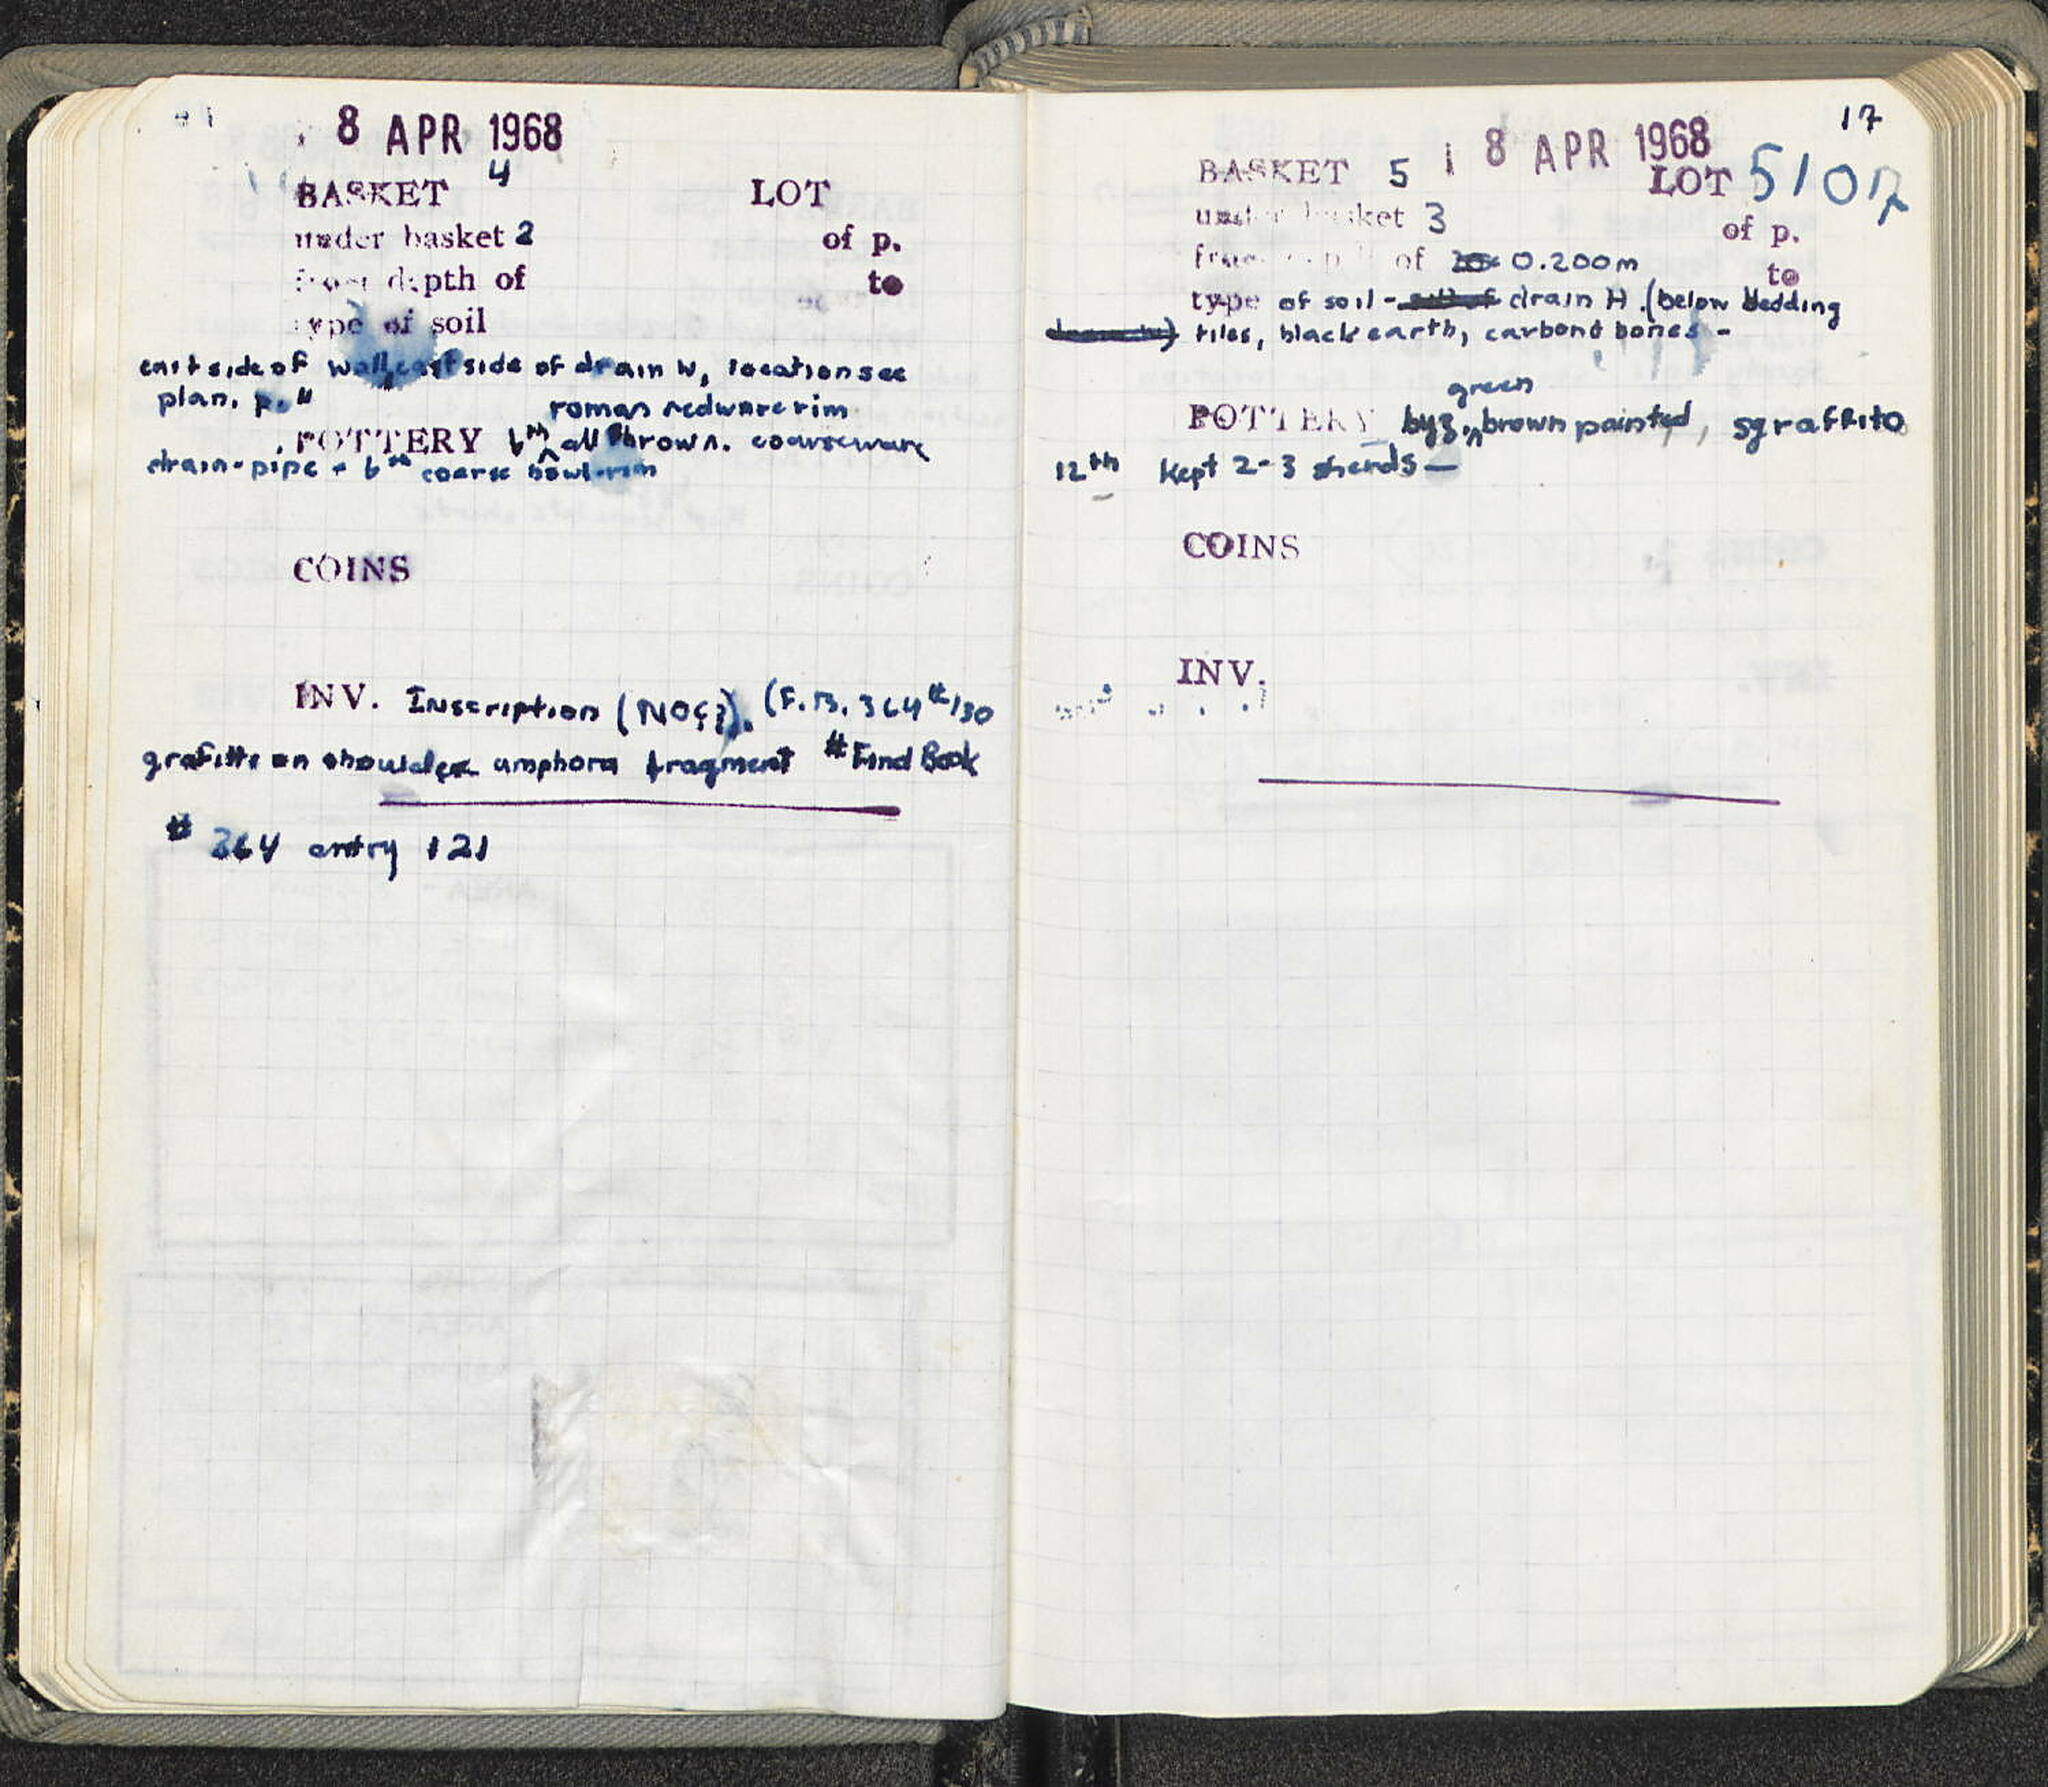 8 APR 1968
BASKET 4 LOT
under basket 2 of p.
from depth of to
type of soil
east side of wall, east side of drain W, location see
plan. p. "
roman redware rim
POTTERY 6th all thrown. coarseware
drain-pipe + 6th coarse bowl-rim
COINS
INV. Inscription (NOς?). (F.B. 364#/30
grafitto on shoulder amphora fragment #Find Book
# 364 entry 121
17
8 APR 1968
BASKET 5 LOT 5107
under basket 3 of p.
from depth of 0.200m to
type of soil - drain H. (below bedding
tiles, black earth, carbond bones -
green
POTTERY byz, brown painted, sgraffito
12th Kept 2-3 sherds—
COINS
INV.